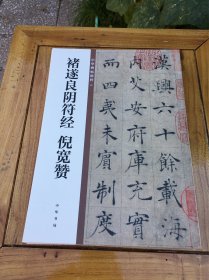 漢興六十餘載海
内乂安府庫充實
而四夷未賓制度
褚遂良阴符经 倪宽赞
中华书局